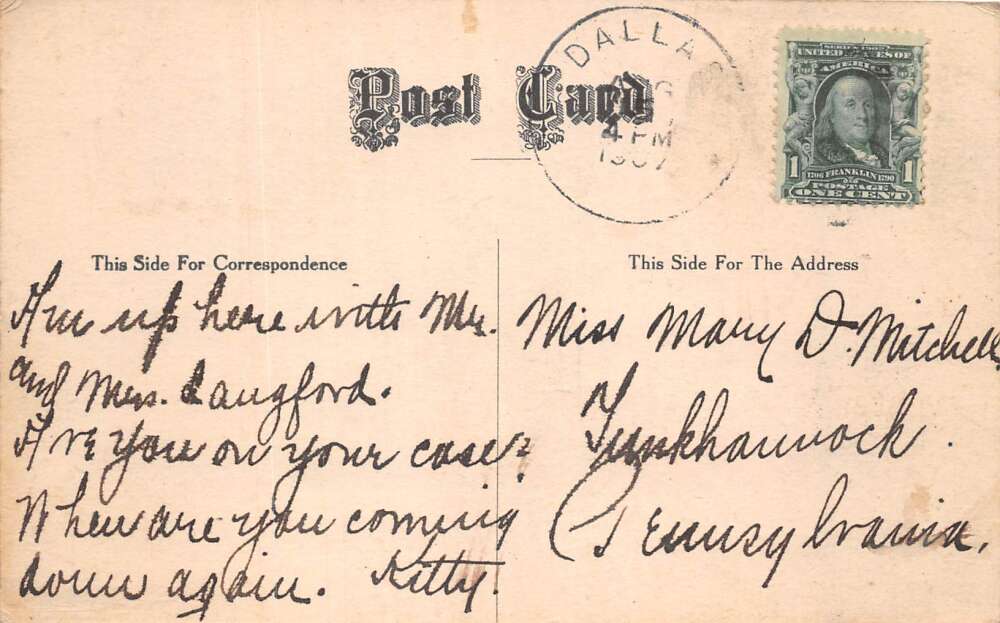 Post Card
DALLAS
AUG
5
4 PM
1907
SERIES 1902
UNITED STATES OF
AMERICA
1 1706 FRANKLIN 1790 1
POSTAGE
ONE CENT
This Side For Correspondence
I'm up here with Mr.
and Mrs. Langford.
Are you on your case?
When are you coming
down again. Kitty.
This Side For The Address
Miss Mary D. Mitchell
Tunkhannock
Pennsylvania.